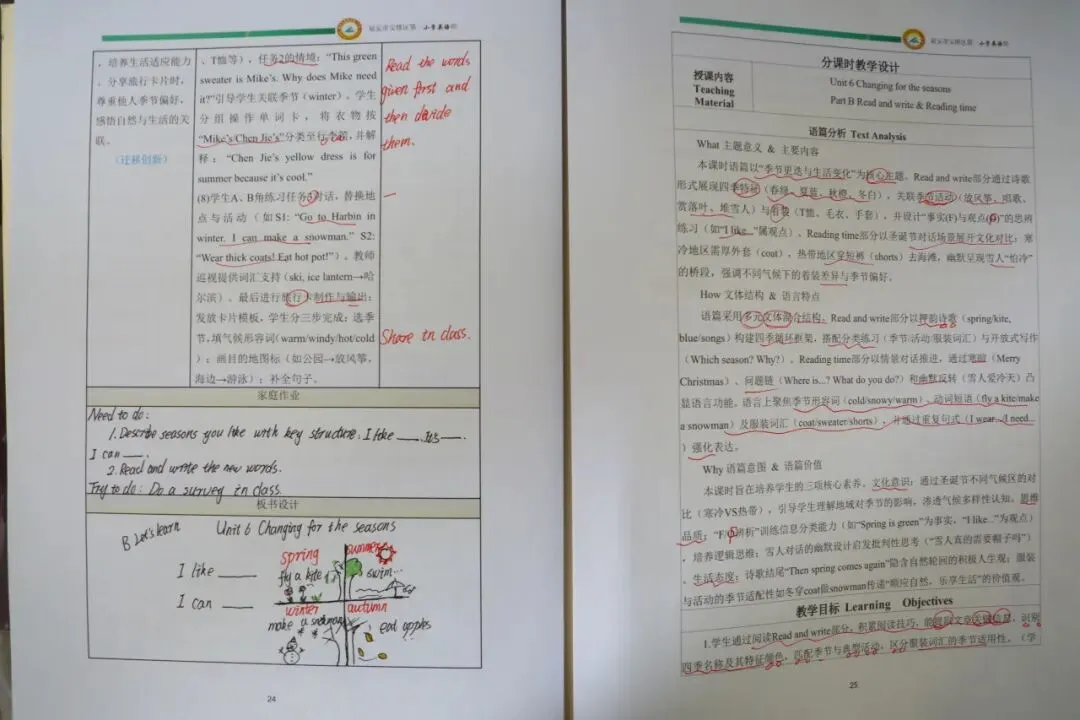 延安市安塞区第 小学英语组
，培养生活适应能力
。分享旅行卡片时，
尊重他人季节偏好，
感悟自然与生活的关
联。
（迁移创新）
、T恤等），任务2的情境：“This green
sweater is Mike's. Why does Mike need
it?”引导学生关联季节（winter）。学生
分组操作单词卡，将衣物按
“Mike's/Chen Jie's”分类至行李箱，并解
释：“Chen Jie's yellow dress is for
summer because it's cool.”
(8)学生A、B角练习任务3对话，替换地
点与活动（如S1: “Go to Harbin in
winter. I can make a snowman.” S2:
“Wear thick coats! Eat hot pot!”）。教师
巡视提供词汇支持（ski, ice lantern→哈
尔滨）。最后进行旅行卡制作与输出：
发放卡片模板，学生分三步完成：选季
节，填气候形容词(warm/windy/hot/cold
)；画目的地图标（如公园→放风筝，
海边→游泳）；补全句子。
Read the words
given first and
then decide
them.
Share in class.
家庭作业
Need to do:
1. Describe seasons you like with key structure: I like ___. It's ___.
I can ___.
2. Read and write the new words.
Try to do: Do a survey in class.
板书设计
B Let's learn
Unit 6 Changing for the seasons
I like ____
I can ____
spring
summer
fly a kite
swim...
winter
autumn
make a snowman
eat apples
24
延安市安塞区第 小学英语组
分课时教学设计
授课内容
Teaching
Material
Unit 6 Changing for the seasons
Part B Read and write & Reading time
语篇分析 Text Analysis
What 主题意义 & 主要内容
本课时语篇以“季节更迭与生活变化”为核心主题。Read and write部分通过诗歌
形式展现四季特征（春绿、夏蓝、秋橙、冬白），关联季节活动（放风筝、唱歌、
赏落叶、堆雪人）与着装（T恤、毛衣、手套），并设计“事实(F)与观点(O)”的思辨
练习（如“I like...”属观点）。Reading time部分以圣诞节对话场景展开文化对比：寒
冷地区需厚外套（coat），热带地区穿短裤（shorts）去海滩，幽默呈现雪人“怕冷”
的桥段，强调不同气候下的着装差异与季节偏好。
How 文体结构 & 语言特点
语篇采用多元文体混合结构。Read and write部分以押韵诗歌（spring/kite,
blue/songs）构建四季循环框架，搭配分类练习（季节/活动/服装词汇）与开放式写作
（Which season? Why?）。Reading time部分以情景对话推进，通过寒暄（Merry
Christmas）、问题链（Where is...? What do you do?）和幽默反转（雪人爱冷天）凸
显语言功能。语言上聚焦季节形容词（cold/snowy/warm）、动词短语（fly a kite/make
a snowman）及服装词汇（coat/sweater/shorts），并通过重复句式（I wear.../I need...
）强化表达。
Why 语篇意图 & 语篇价值
本课时旨在培养学生的三项核心素养。文化意识：通过圣诞节不同气候区的对
比（寒冷VS热带），引导学生理解地域对季节的影响，渗透气候多样性认知。思维
品质：“F/O辨析”训练信息分类能力（如“Spring is green”为事实，“I like...”为观点）
，培养逻辑思维；雪人对话的幽默设计启发批判性思考（“雪人真的需要帽子吗”）
。生活态度：诗歌结尾“Then spring comes again”隐含自然轮回的积极人生观；服装
与活动的季节适配性如冬穿coat做snowman传递“顺应自然，乐享生活”的价值观。
教学目标 Learning Objectives
1.学生通过阅读Read and write部分，积累阅读技巧，能提取文章关键信息，识别
四季名称及其特征颜色，匹配季节与典型活动，区分服装词汇的季节适用性。（学
25